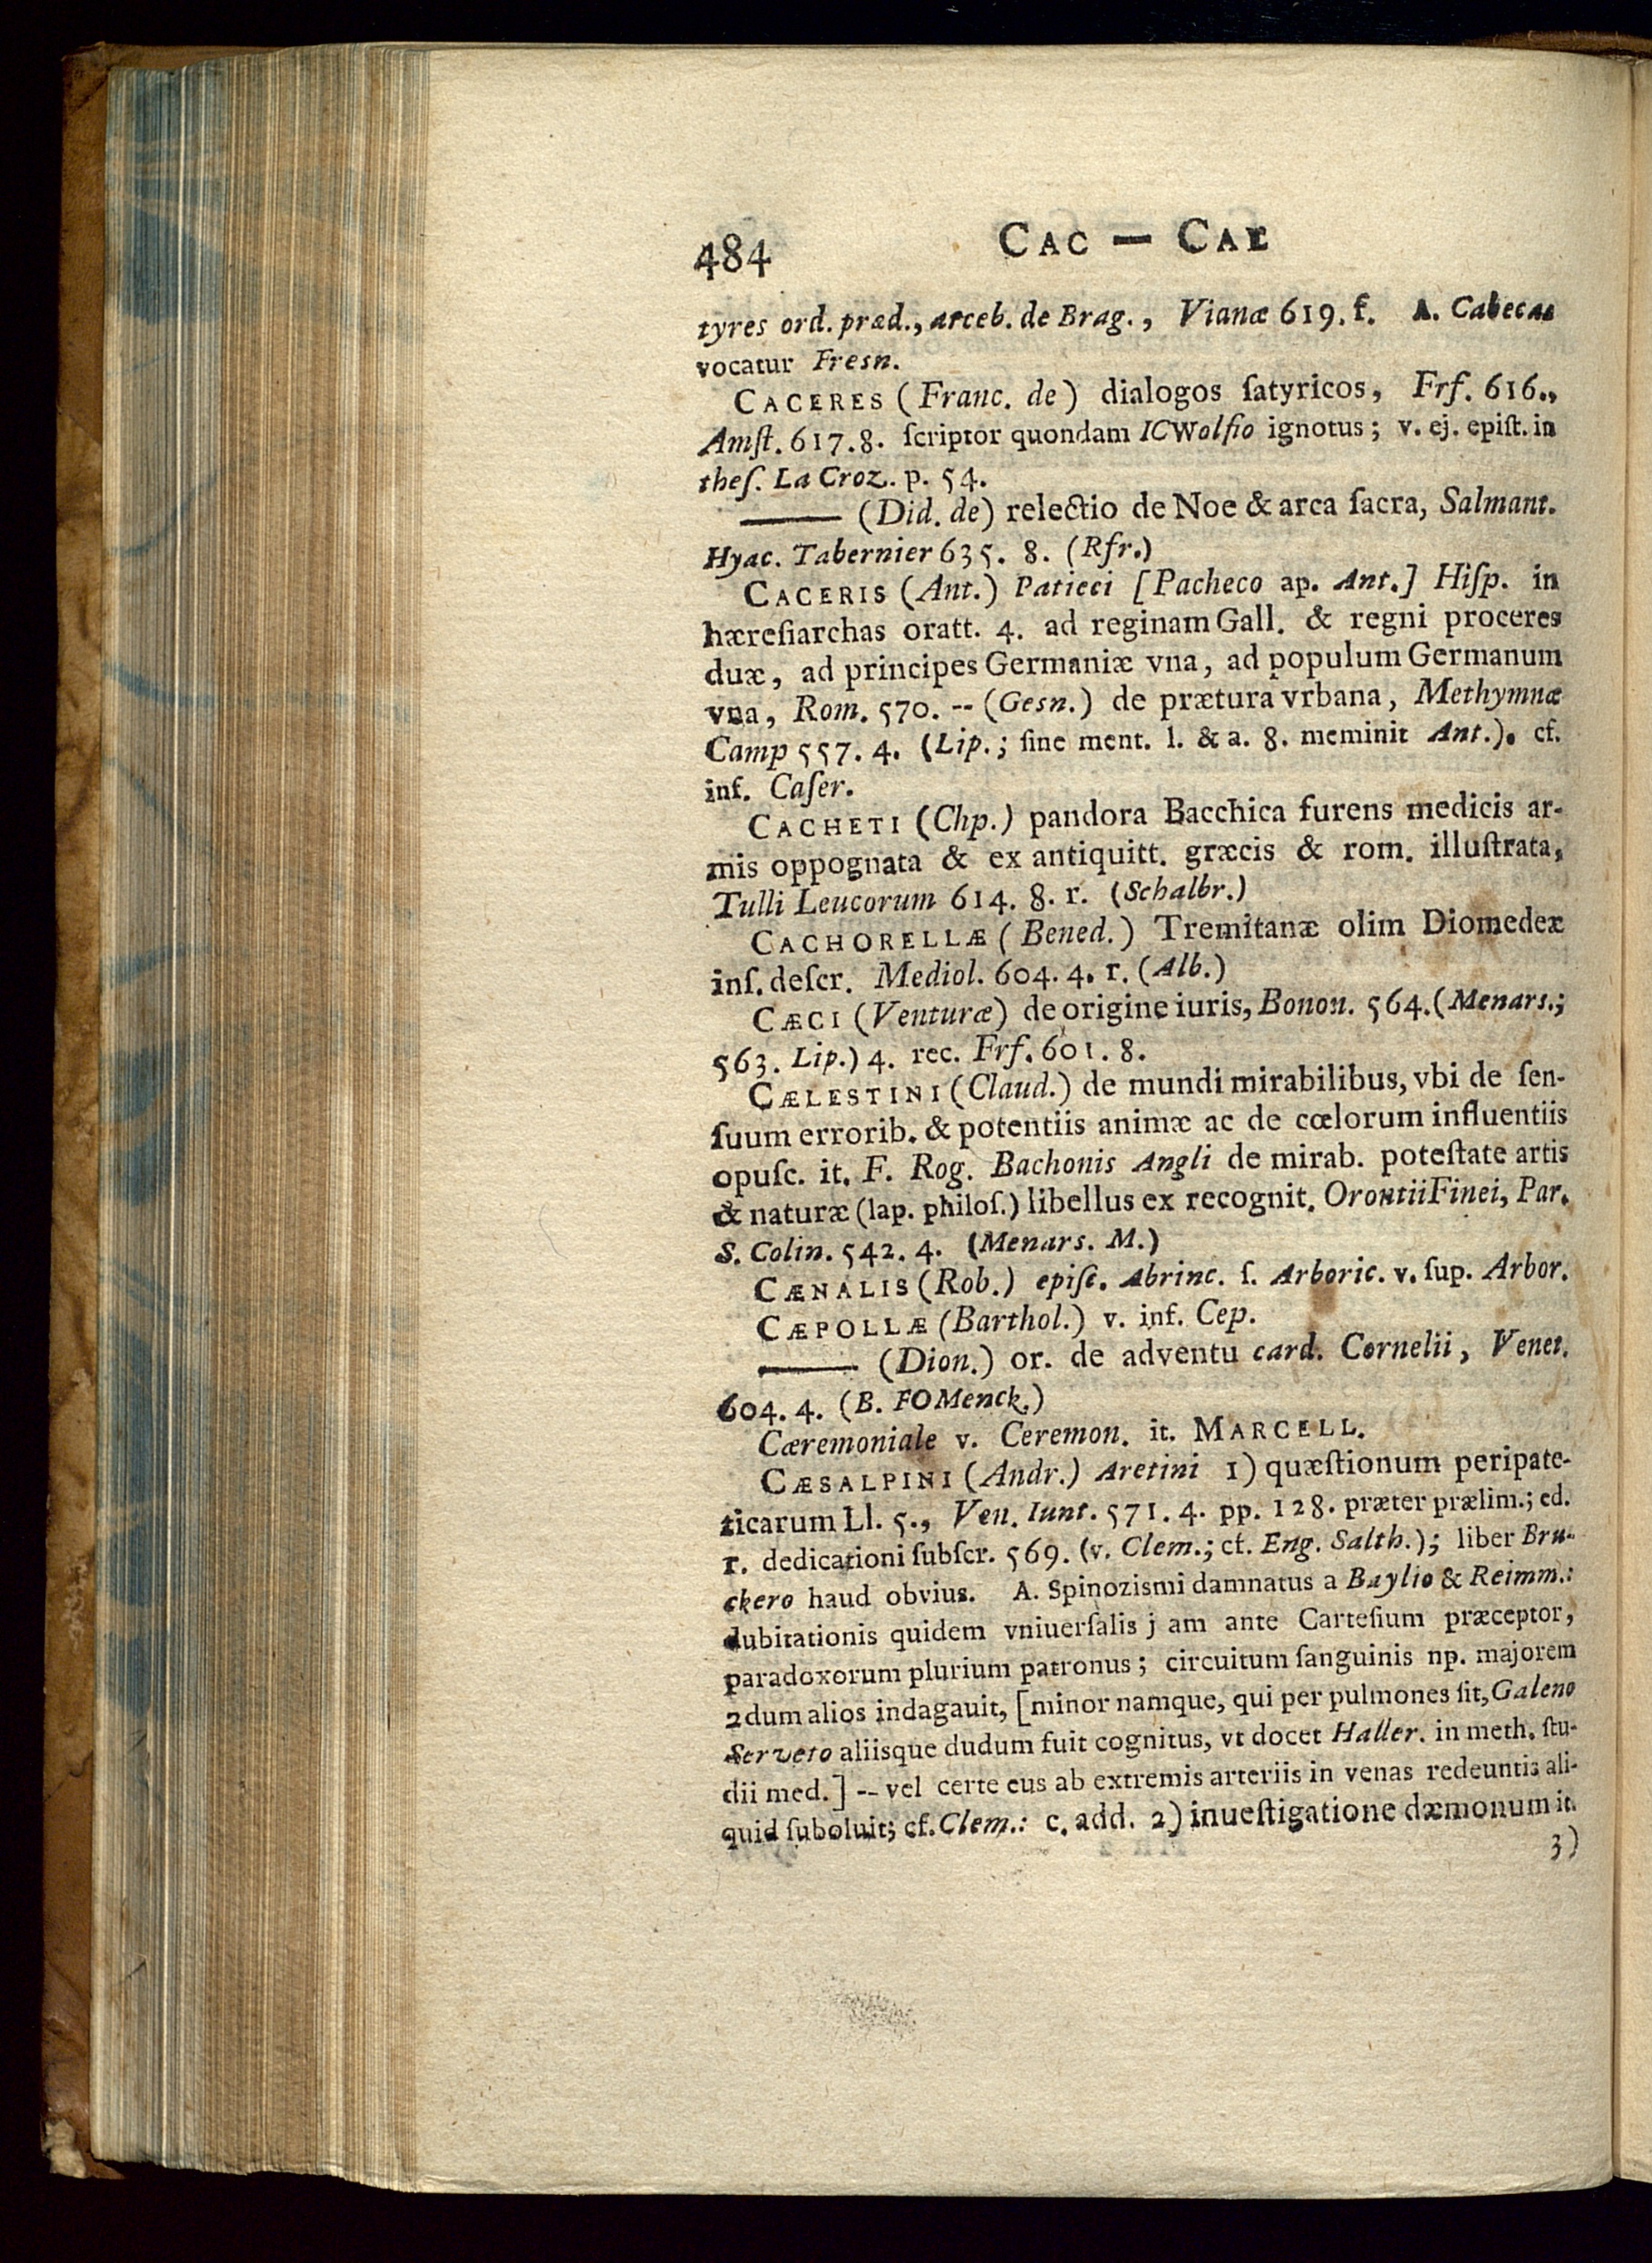 484 CAC — CAE
tyres ord. præd., arceb. de Brag., Vianæ 619. f. A. Cabecas
vocatur Fresn.
CACERES (Franc. de) dialogos ſatyricos, Frf. 616.,
Amſt. 617. 8. ſcriptor quondam ICWolfio ignotus; v. ej. epiſt. in
theſ. La Croz. p. 54.
——— (Did. de) relectio de Noe & arca ſacra, Salmant.
Hyac. Tabernier 635. 8. (Rfr.)
CACERIS (Ant.) Patieci [Pacheco ap. Ant.] Hiſp. in
hæreſiarchas oratt. 4. ad reginam Gall. & regni proceres
duæ, ad principes Germaniæ vna, ad populum Germanum
vna, Rom. 570. -- (Gesn.) de prætura vrbana, Methymnæ
Camp 557. 4. (Lip.; ſine ment. l. & a. 8. meminit Ant.). cf.
inf. Caſer.
CACHETI (Chp.) pandora Bacchica furens medicis ar-
mis oppognata & ex antiquitt. græcis & rom. illuſtrata,
Tulli Leucorum 614. 8. r. (Schalbr.)
CACHORELLÆ (Bened.) Tremitanæ olim Diomedeæ
inſ. deſcr. Mediol. 604. 4. r. (Alb.)
CÆCI (Venturæ) de origine iuris, Bonon. 564. (Menars.;
563. Lip.) 4. rec. Frf. 601. 8.
CÆLESTINI (Claud.) de mundi mirabilibus, vbi de ſen-
ſuum errorib. & potentiis animæ ac de cœlorum influentiis
opuſc. it. F. Rog. Bachonis Angli de mirab. poteſtate artis
& naturæ (lap. philoſ.) libellus ex recognit. Orontii Finei, Par.
S. Colin. 542. 4. (Menars. M.)
CÆNALIS (Rob.) epiſc. Abrinc. ſ. Arboric. v. ſup. Arbor.
CÆPOLLÆ (Barthol.) v. inf. Cep.
——— (Dion.) or. de adventu card. Cornelii, Venet.
604. 4. (B. FOMenck.)
Cæremoniale v. Ceremon. it. MARCELL.
CÆSALPINI (Andr.) Aretini 1) quæſtionum peripate-
ticarum Ll. 5., Ven. Iunt. 571. 4. pp. 128. præter prælim.; ed.
r. dedicationi ſubſcr. 569. (v. Clem.; cf. Eng. Salth.); liber Bru-
ckero haud obvius. A. Spinozismi damnatus a Baylio & Reimm.:
dubitationis quidem vniuerſalis j am ante Carteſium præceptor,
paradoxorum plurium patronus; circuitum ſanguinis np. majorem
2dum alios indagauit, [minor namque, qui per pulmones fit, Galeno
Serveto aliisque dudum fuit cognitus, vt docet Haller. in meth. ſtu-
dii med.] -- vel certe eus ab extremis arteriis in venas redeuntis ali-
quid ſuboluit; cf. Clem.: c. add. 2) inueſtigatione dæmonum it.
3)